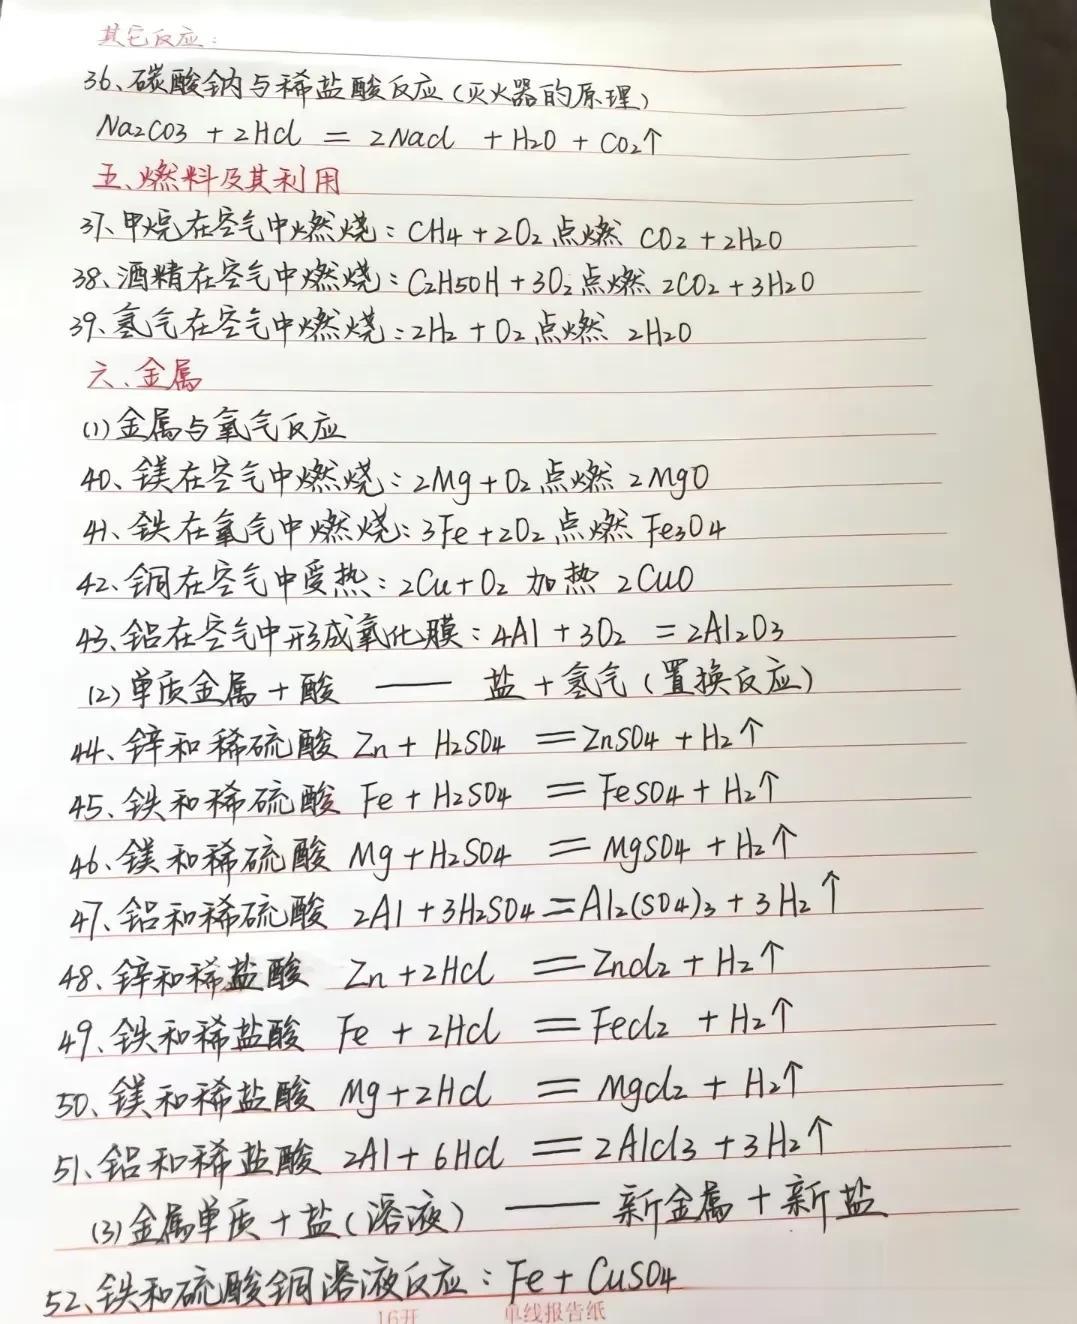 其它反应：
36、碳酸钠与稀盐酸反应(灭火器的原理)
Na2CO3 + 2HCl = 2NaCl + H2O + CO2↑
五、燃料及其利用
37、甲烷在空气中燃烧：CH4 + 2O2 点燃 CO2 + 2H2O
38、酒精在空气中燃烧：C2H5OH + 3O2 点燃 2CO2 + 3H2O
39、氢气在空气中燃烧：2H2 + O2 点燃 2H2O
六、金属
(1)金属与氧气反应
40、镁在空气中燃烧：2Mg + O2 点燃 2MgO
41、铁在氧气中燃烧：3Fe + 2O2 点燃 Fe3O4
42、铜在空气中受热：2Cu + O2 加热 2CuO
43、铝在空气中形成氧化膜：4Al + 3O2 = 2Al2O3
(2)单质金属 + 酸 —— 盐 + 氢气(置换反应)
44、锌和稀硫酸 Zn + H2SO4 = ZnSO4 + H2↑
45、铁和稀硫酸 Fe + H2SO4 = FeSO4 + H2↑
46、镁和稀硫酸 Mg + H2SO4 = MgSO4 + H2↑
47、铝和稀硫酸 2Al + 3H2SO4 = Al2(SO4)3 + 3H2↑
48、锌和稀盐酸 Zn + 2HCl = ZnCl2 + H2↑
49、铁和稀盐酸 Fe + 2HCl = FeCl2 + H2↑
50、镁和稀盐酸 Mg + 2HCl = MgCl2 + H2↑
51、铝和稀盐酸 2Al + 6HCl = 2AlCl3 + 3H2↑
(3)金属单质 + 盐(溶液) —— 新金属 + 新盐
52、铁和硫酸铜溶液反应：Fe + CuSO4
16开 单线报告纸